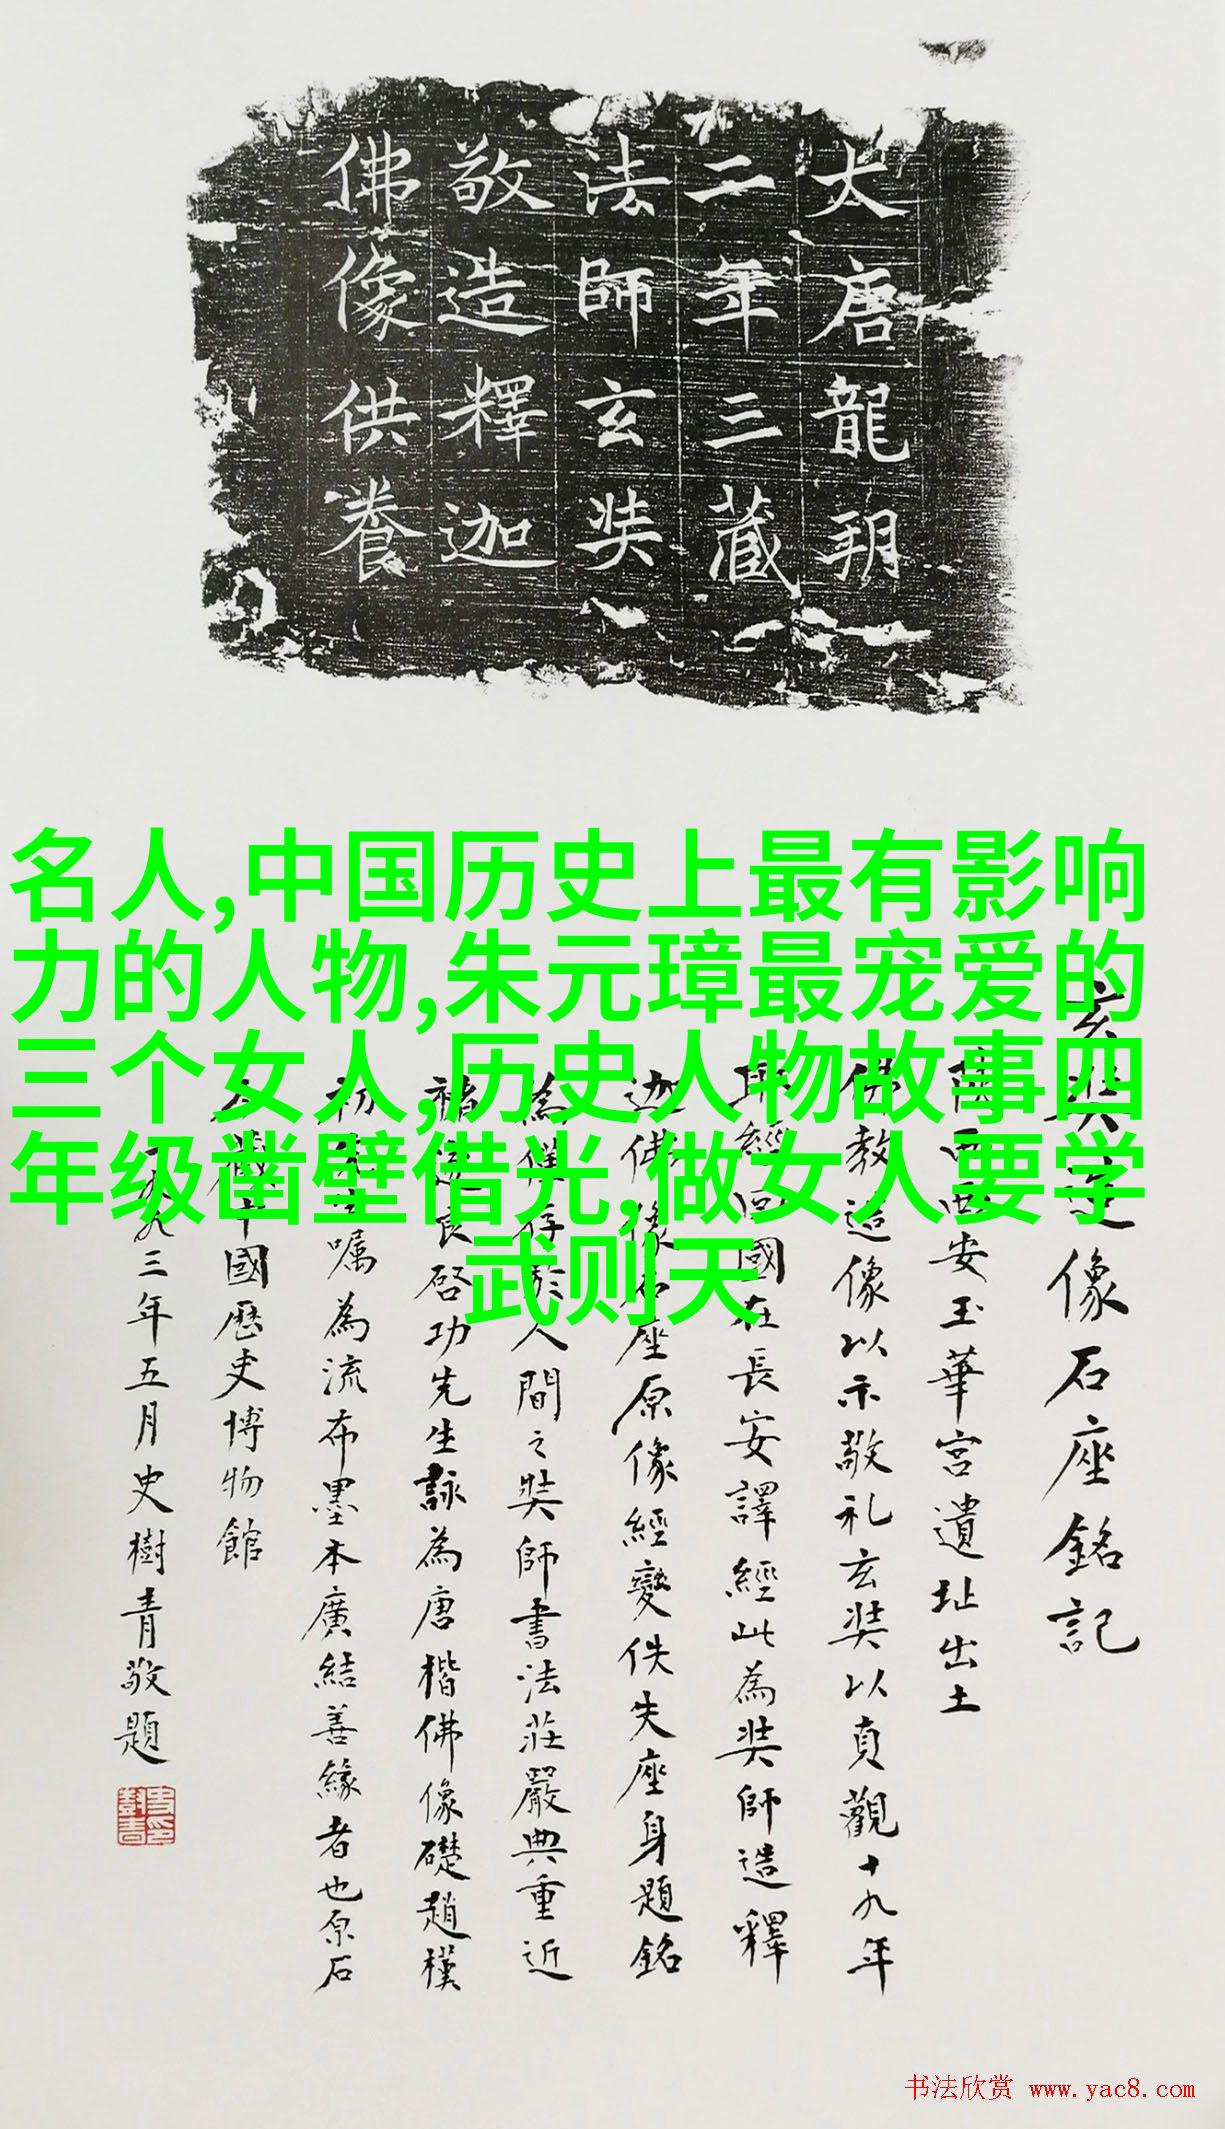 大唐龍朔
二年三藏
法師玄奘
敬造釋迦
佛像供養
名人,中国历史上最有影响
力的人物,朱元璋最宠爱的
三个女人,历史人物故事四
年级凿壁借光,做女人要学
武则天
玄奘造像石座銘記
陝西西安玉華宮遺址出土
佛教造像以示敬礼玄奘以貞觀十九年
取經回國在長安譯經此為奘師造釋
迦佛像石座原像經變佚失座身題銘
為僅存於人間之奘師書法莊嚴典重近
褚遂良启功先生詠為唐楷佛像礎趙樸
初先生嘱為流布墨本廣結善緣者也原石
今藏中國歷史博物館
一九九三年五月史樹青敬題
书法欣赏 www.yac8.com